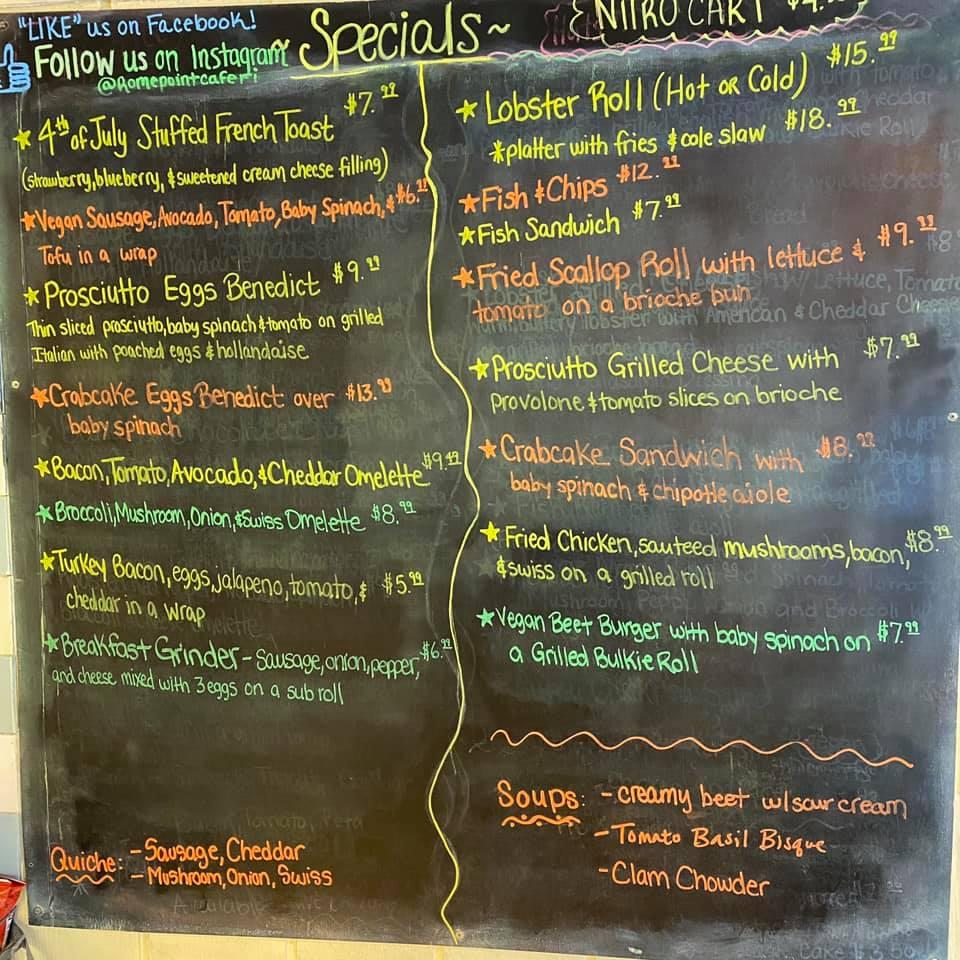 "LIKE" us on Facebook!
Follow us on Instagram
@homepointcaferi
~Specials~
NITRO CART $4.
★ 4th of July Stuffed French Toast $7.99
(strawberry, blueberry, & sweetened cream cheese filling)
★Vegan Sausage, Avocado, Tomato, Baby Spinach, & $6.99
Tofu in a wrap
★Prosciutto Eggs Benedict $9.99
Thin sliced prosciutto, baby spinach & tomato on grilled
Italian with poached eggs & hollandaise
★Crabcake Eggs Benedict over $13.99
baby spinach
★Bacon, Tomato, Avocado, & Cheddar Omelette $9.99
★Broccoli, Mushroom, Onion, & Swiss Omelette $8.99
★Turkey Bacon, eggs, jalapeno, tomato, & $5.99
cheddar in a wrap
★Breakfast Grinder - Sausage, onion, pepper, $6.99
and cheese mixed with 3 eggs on a sub roll
Quiche: - Sausage, Cheddar
- Mushroom, Onion, Swiss
★ Lobster Roll (Hot or Cold) $15.99
*platter with fries & cole slaw $18.99
★Fish & Chips $12.99
★Fish Sandwich $7.99
★Fried Scallop Roll with lettuce & $9.99
tomato on a brioche bun
★Prosciutto Grilled Cheese with $7.99
provolone & tomato slices on brioche
★Crabcake Sandwich with $8.99
baby spinach & chipotle aiole
★Fried Chicken, sauteed mushrooms, bacon, $8.99
& swiss on a grilled roll
★Vegan Beet Burger with baby spinach on $7.99
a Grilled Bulkie Roll
Soups: - creamy beet w/ sour cream
- Tomato Basil Bisque
- Clam Chowder